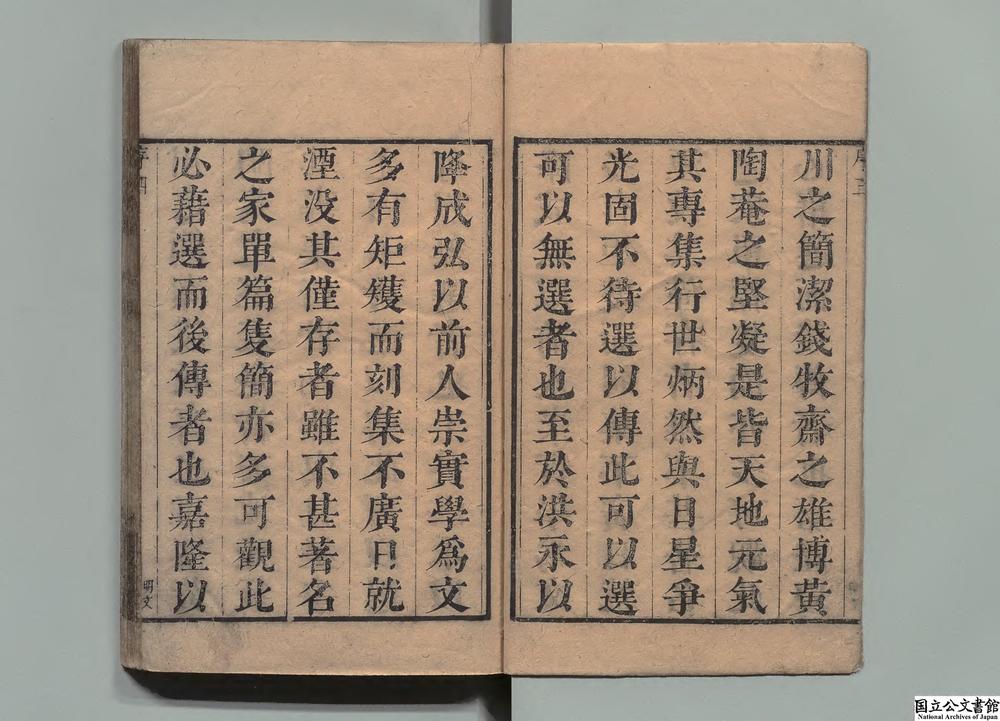 川之簡潔錢牧齋之雄博黃
陶菴之堅凝是皆天地元氣
其專集行世炳然與日星爭
光固不待選以傳此可以選
可以無選者也至於洪永以
降成弘以前人崇實學為文
多有矩矱而刻集不廣日就
湮没其僅存者雖不甚著名
之家單篇隻簡亦多可觀此
必藉選而後傳者也嘉隆以
明文
国立公文書館
National Archives of Japan